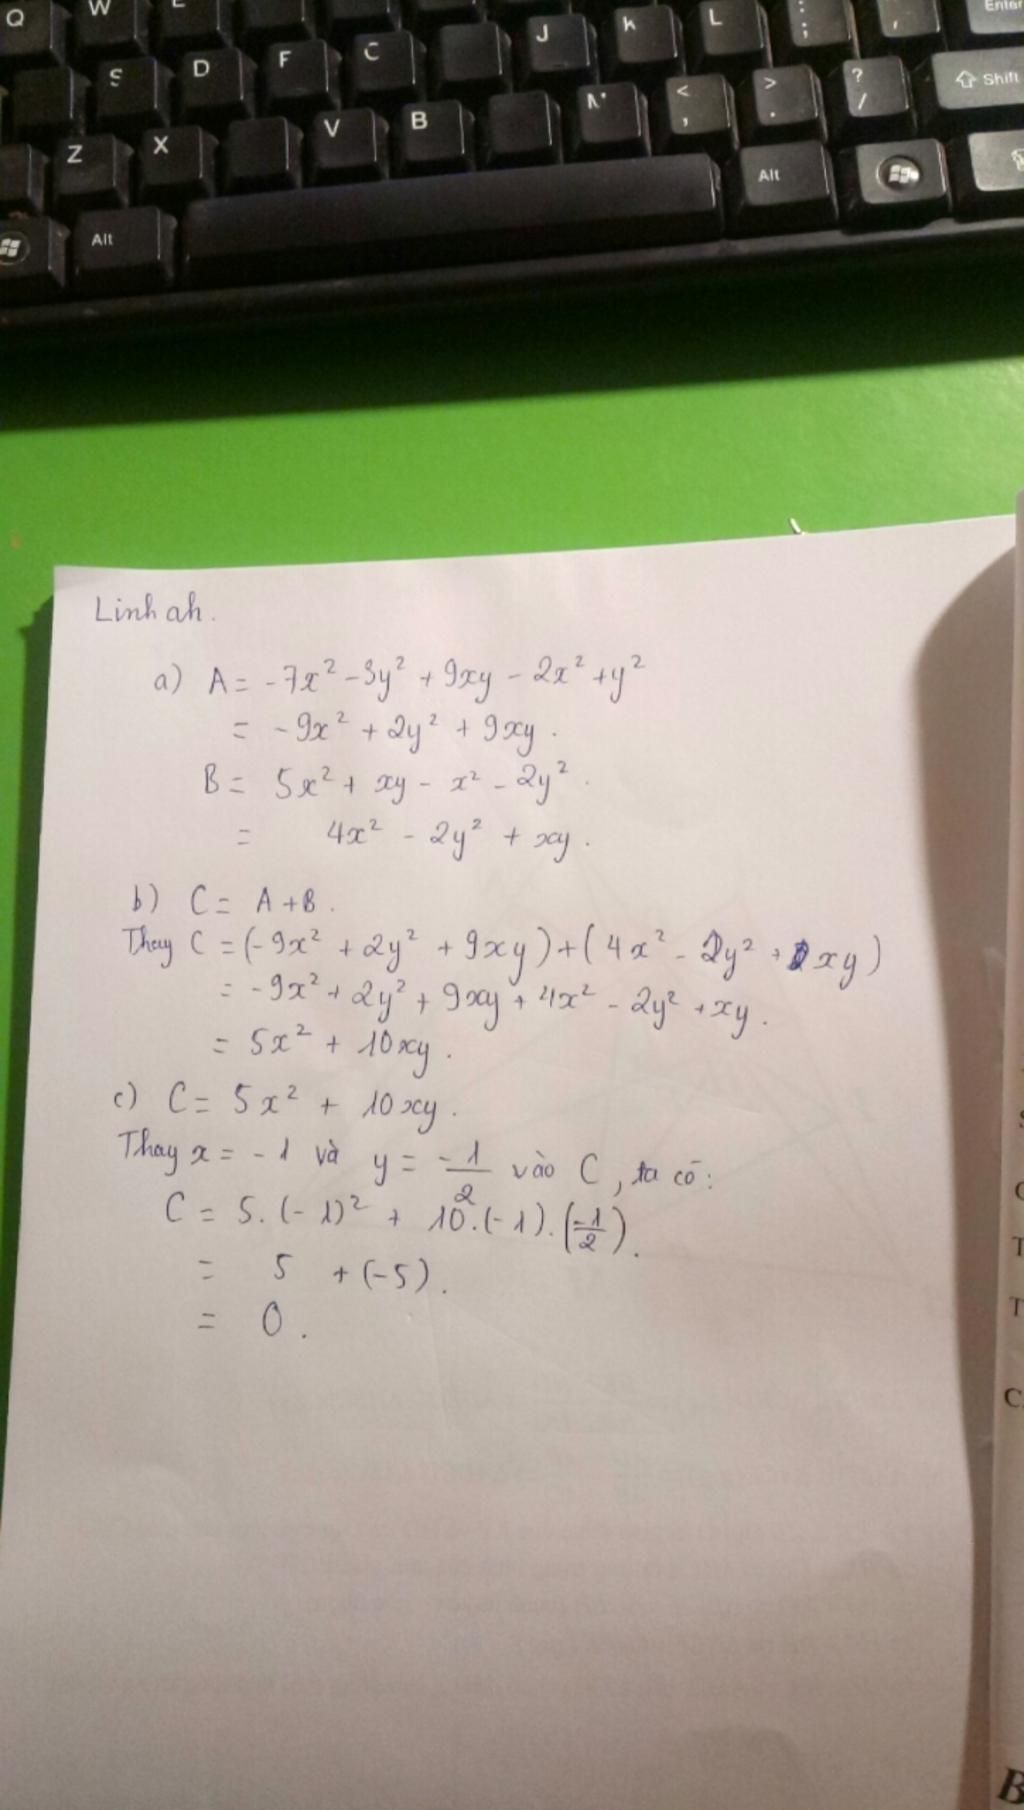 Q W E
S D F C J K L : ; , Enter
Z X V B N < , > . ? / Shift
Alt Alt
Linh ah.
a) A = -7x² - 3y² + 9xy - 2x² + y²
= -9x² + 2y² + 9xy.
B = 5x² + xy - x² - 2y².
= 4x² - 2y² + xy.
b) C = A + B.
Thay C = (-9x² + 2y² + 9xy) + (4x² - 2y² + xy)
= -9x² + 2y² + 9xy + 4x² - 2y² + xy.
= 5x² + 10xy.
c) C = 5x² + 10xy.
Thay x = -1 và y = -1/2 vào C, ta có:
C = 5.(-1)² + 10.(-1).(-1/2).
= 5 + (-5).
= 0.
B